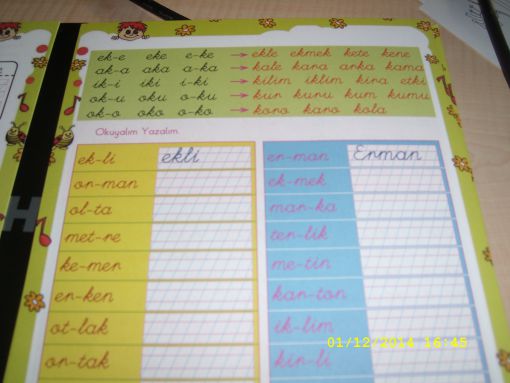 ek-e eke e-ke → ekle ekmek kete kene
ak-a aka a-ka → kale kara arka kama
ik-i iki i-ki → kilim iklim kira etki
ok-u oku o-ku → kur kuru kum kumu
ok-o oko o-ko → koro karo kola
Okuyalım Yazalım.
ek-li ekli
or-man
ol-ta
met-re
ke-mer
er-ken
ot-lak
or-tak
er-man Erman
ek-mek
mar-ka
ter-lik
me-tin
kar-ton
ik-lim
kir-li
01/12/2014 16:45